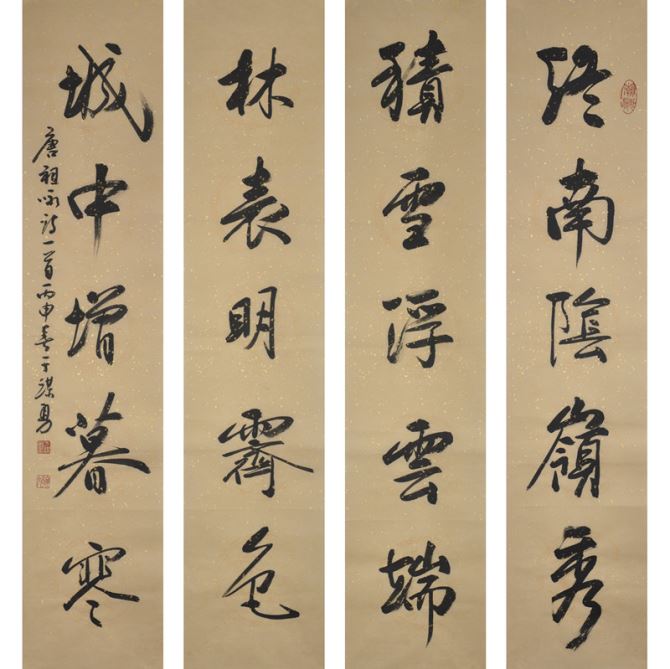 終南陰嶺秀
積雪浮雲端
林表明霽色
城中增暮寒
唐祖咏詩一首丙申春于謀勇